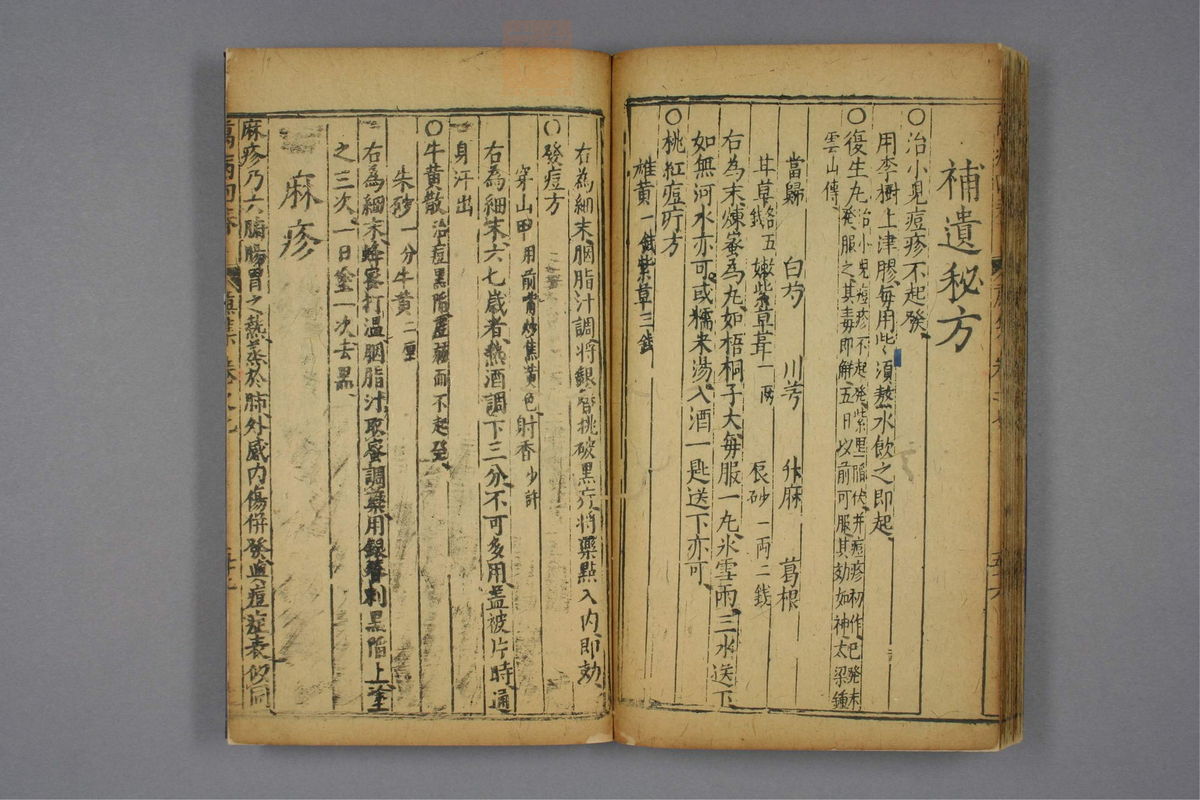 補遺秘方
○治小兒痘疹不起發
用李樹上津膠每用些須熬水飲之即起
○復生丸治小兒痘疹不起發紫黑陷伏并痘疹初作已發未
發服之其毒即解五日以前可服其効如神太梁鍾
雲山傳
當歸 白芍 川芎 升麻 葛根
甘草各五錢 嫩紫草茸一兩 辰砂一両二錢
右為末煉蜜為丸如梧桐子大每服一丸氷雪雨三水送下
如無河水亦可或糯米湯入酒一匙送下亦可
○桃紅痘疔方
雄黃一錢紫草三錢
右為細末胭脂汁調將銀簪挑破黑疔將藥點入內即効
○發痘方
穿山甲用前膏炒焦黃色射香少許
右為細末六七歲者熱酒調下三分不可多用盖被片時通
身汗出
○牛黃散治痘黑陷虛弱而不起發
朱砂一分牛黃二厘
右為細末蜂蜜打溫胭脂汁取蜜調藥用銀簪刺黑陷上塗
之三次一日塗一次去黑
麻疹
麻疹乃六腑腸胃之熱蒸於肺外感內傷併發與痘症表似同
萬病回春